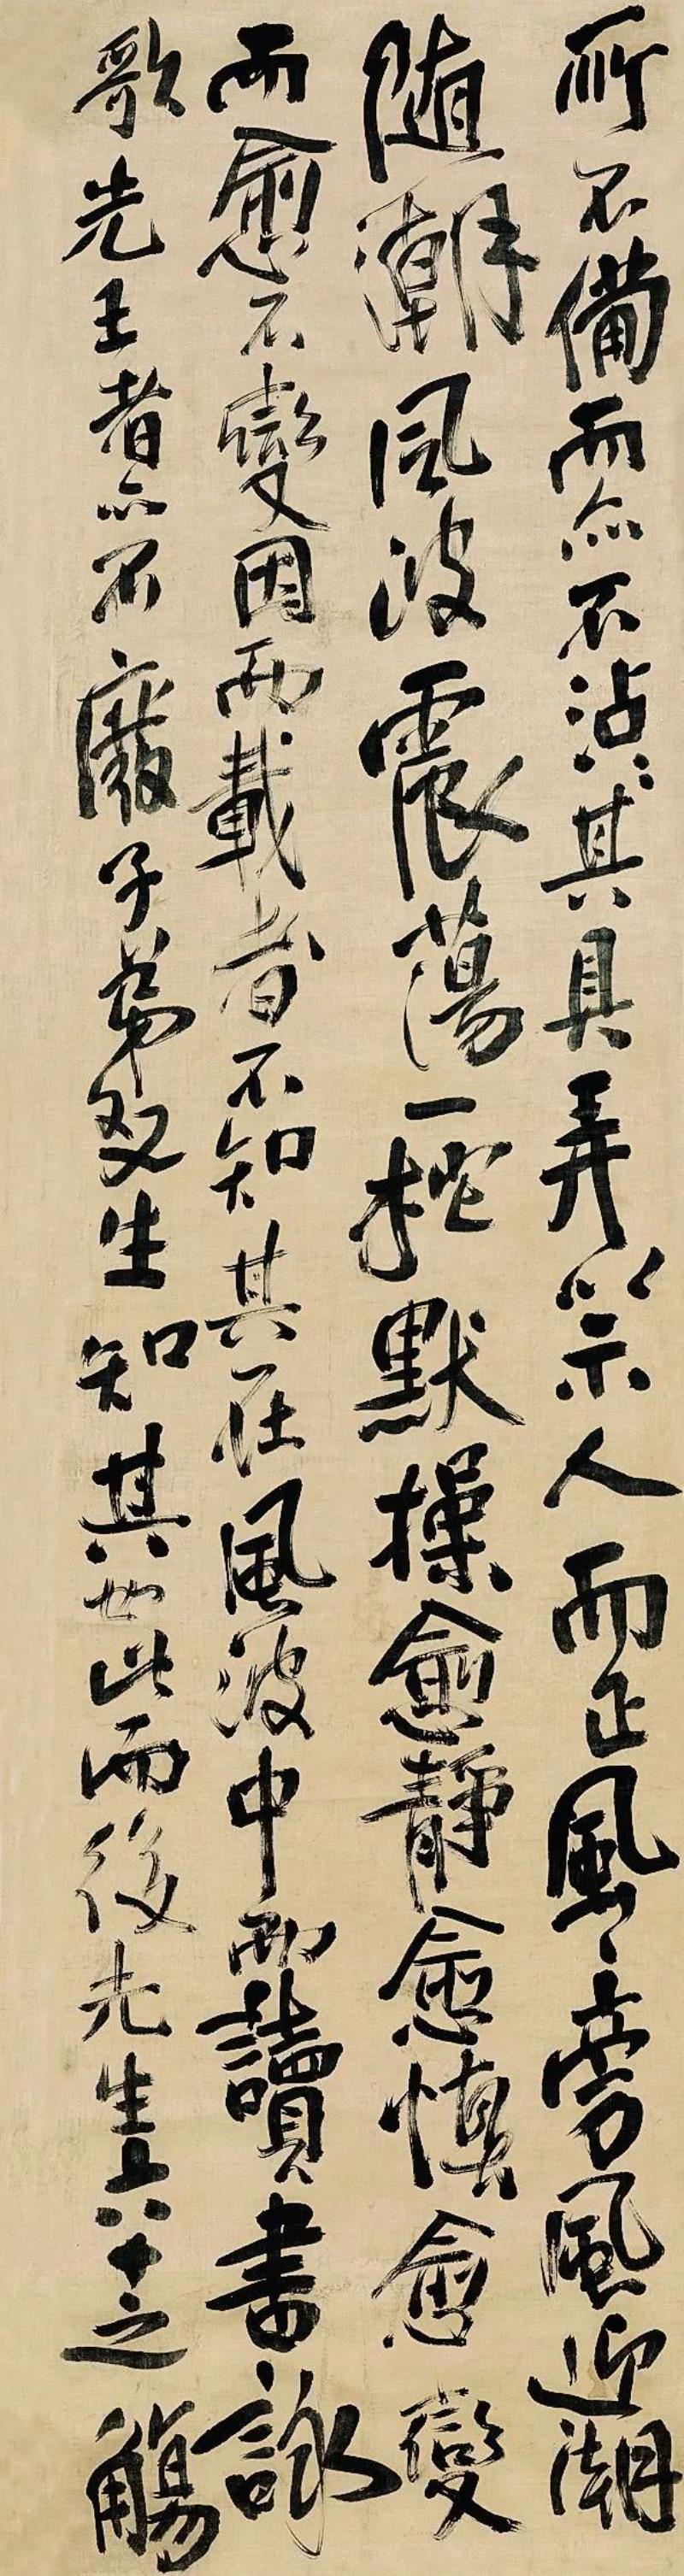 所不備而亦不沾沾其具弄禁人而正風旁風迎潮
随潮風波震蕩一柁默操愈靜愈慎愈變
而愈不變因而載者不知其在風波中而讀書詠
歌先王者亦不廢子弟父生知其如此而後先生六十之觴